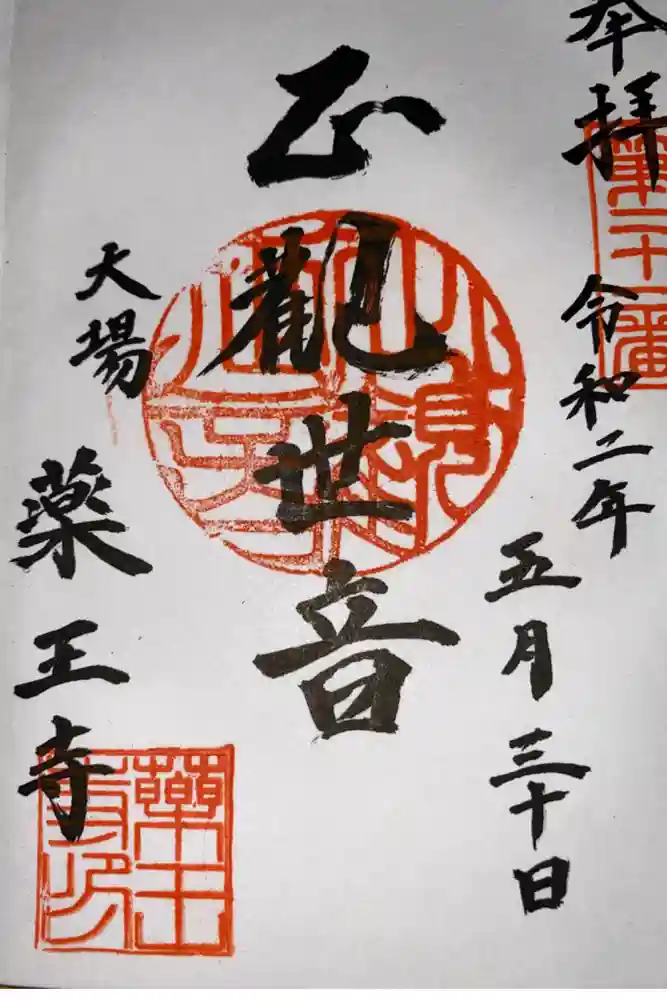 奉拝
第二十一番
令和二年
五月三十日
正觀世音
大場
薬王寺
薬王寺印